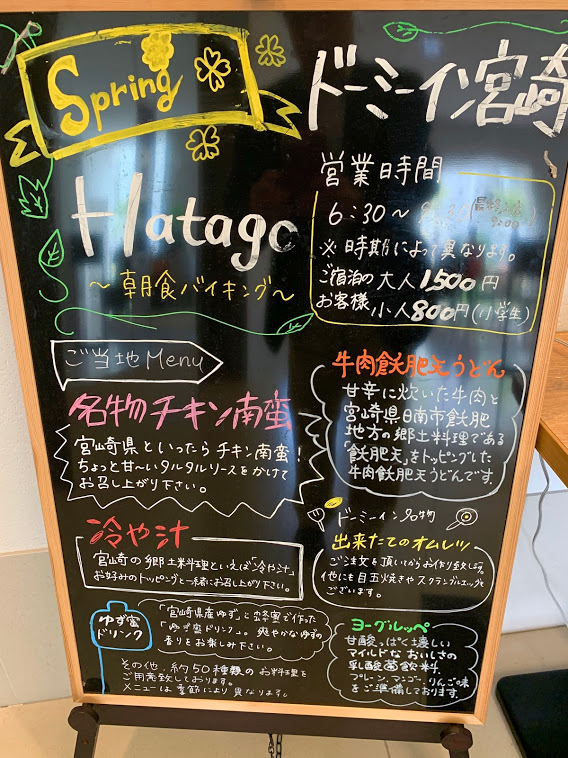 Spring
ドーミーイン宮崎
Hatago
～朝食バイキング～
営業時間
6:30～
※時期によって異なります。
ご宿泊の大人1500円
お客様 小人800円(小学生)
ご当地Menu
名物チキン南蛮
宮崎県といったらチキン南蛮！
ちょっと甘～いタルタルソースをかけて
お召し上がり下さい。
牛肉飫肥天うどん
甘辛に炊いた牛肉と
宮崎県日南市飫肥
地方の郷土料理である
「飫肥天」をトッピングした
牛肉飫肥天うどんです。
冷や汁
宮崎の郷土料理といえば「冷や汁」
お好みのトッピングと一緒にお召し上がり下さい。
ドーミーイン名物
出来たてのオムレツ
ご注文を頂いてからお作り致します。
他にも目玉焼きやスクランブルエッグも
ございます。
ゆず蜜
ドリンク
「宮崎県産ゆず」と蜂蜜で作った
「ゆず蜜ドリンク」。爽やかなゆずの
香りをお楽しみ下さい。
ヨーグルッペ
甘酸っぱく嬉しい
マイルドなおいしさの
乳酸菌飲料
プレーン、マンゴー、りんご味
をご準備しております。
その他、約50種類のお料理を
ご用意致しております。
メニューは季節により異なります。